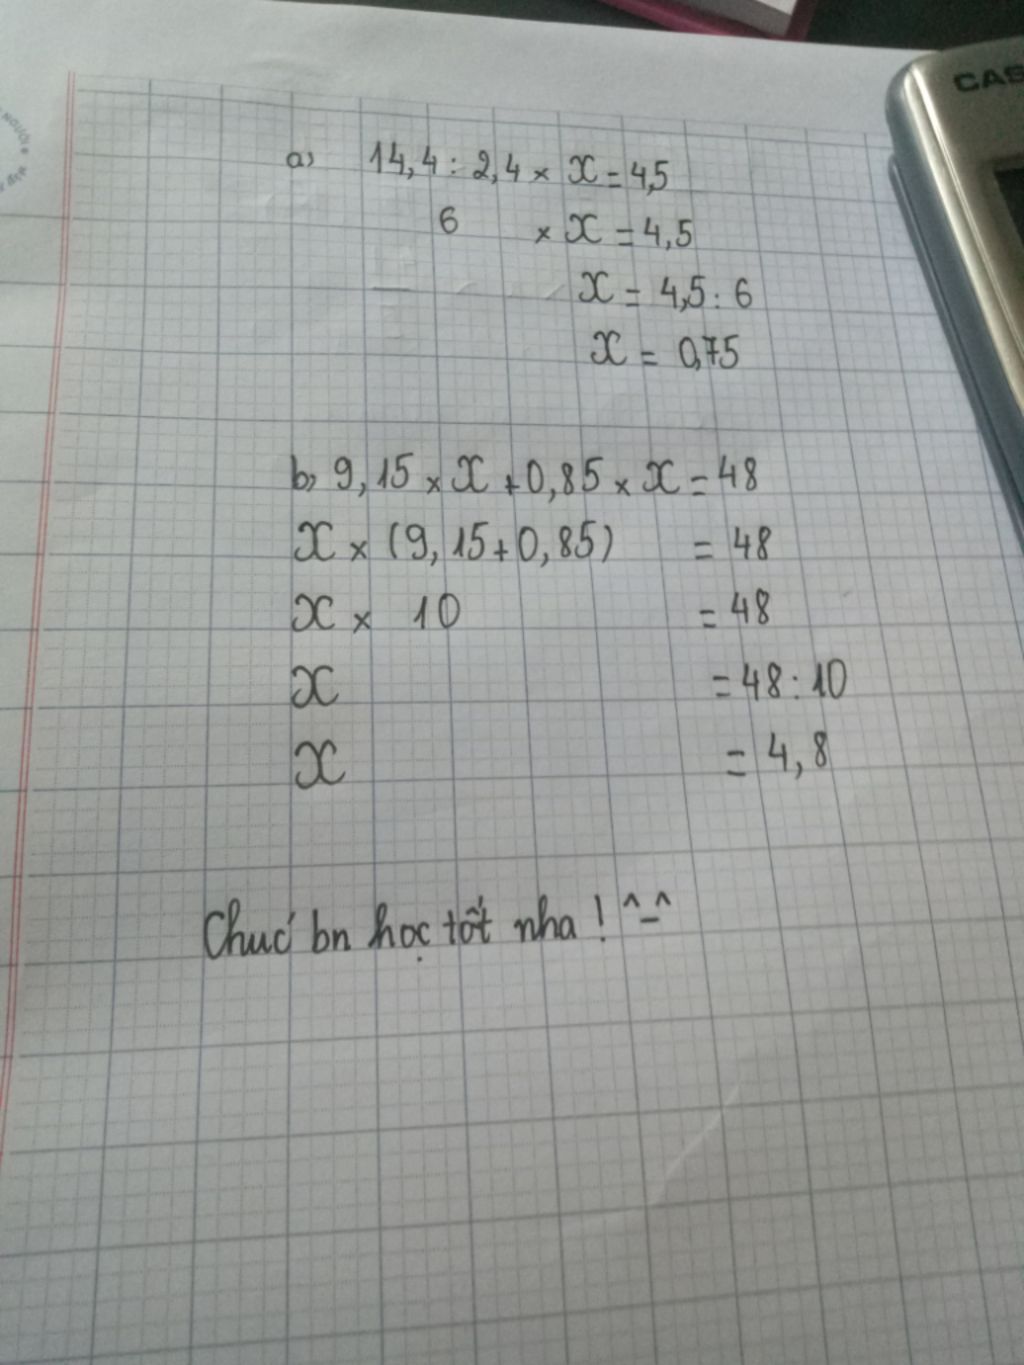 CAS
a) 14,4 : 2,4 × x = 4,5
6 × x = 4,5
x = 4,5 : 6
x = 0,75
b) 9,15 × x + 0,85 × x = 48
x × (9,15 + 0,85) = 48
x × 10 = 48
x = 48 : 10
x = 4,8
Chúc bn học tốt nha ! ^-^